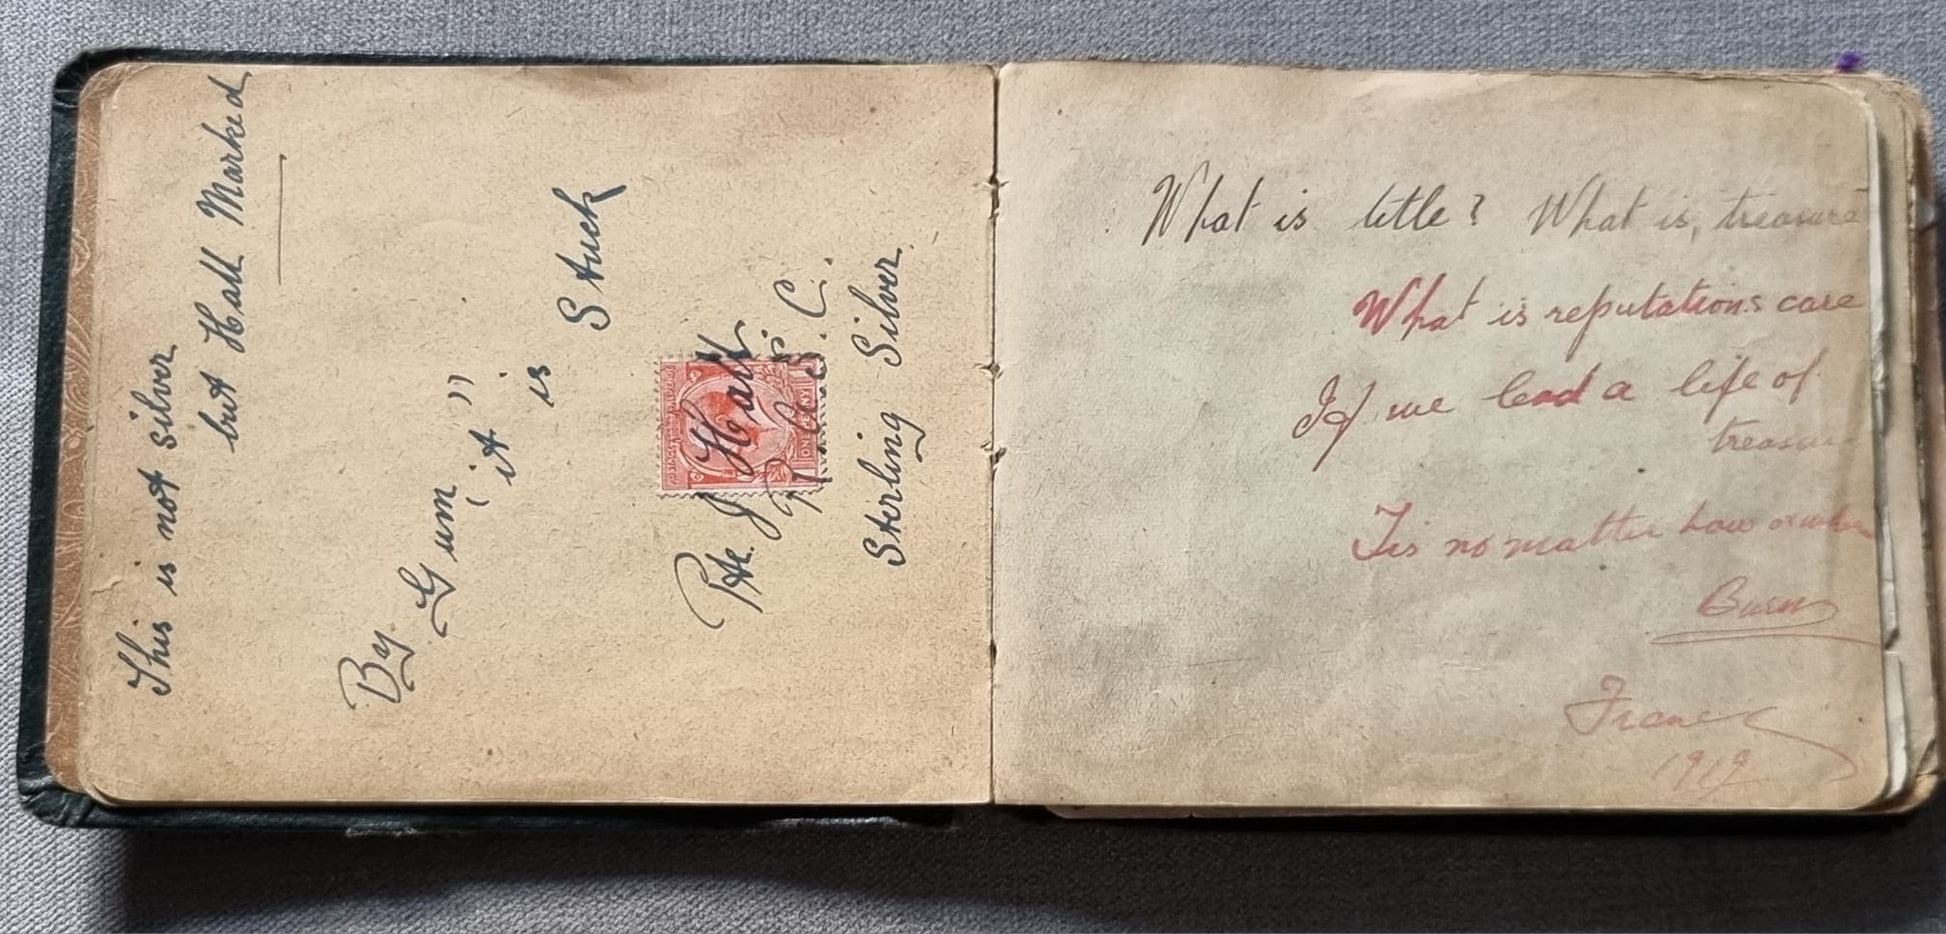 This is not silver
but Hall Marked
By Gum
"it"
is
Stuck
Pte. J Hall
R.A.S.C.
Sterling Silver
POSTAGE
REVENUE
ONE PENNY
What is title? What is, treasure
What is reputations care
If we lead a life of
treasure
Tis no matter how or when
Burns
France
1919